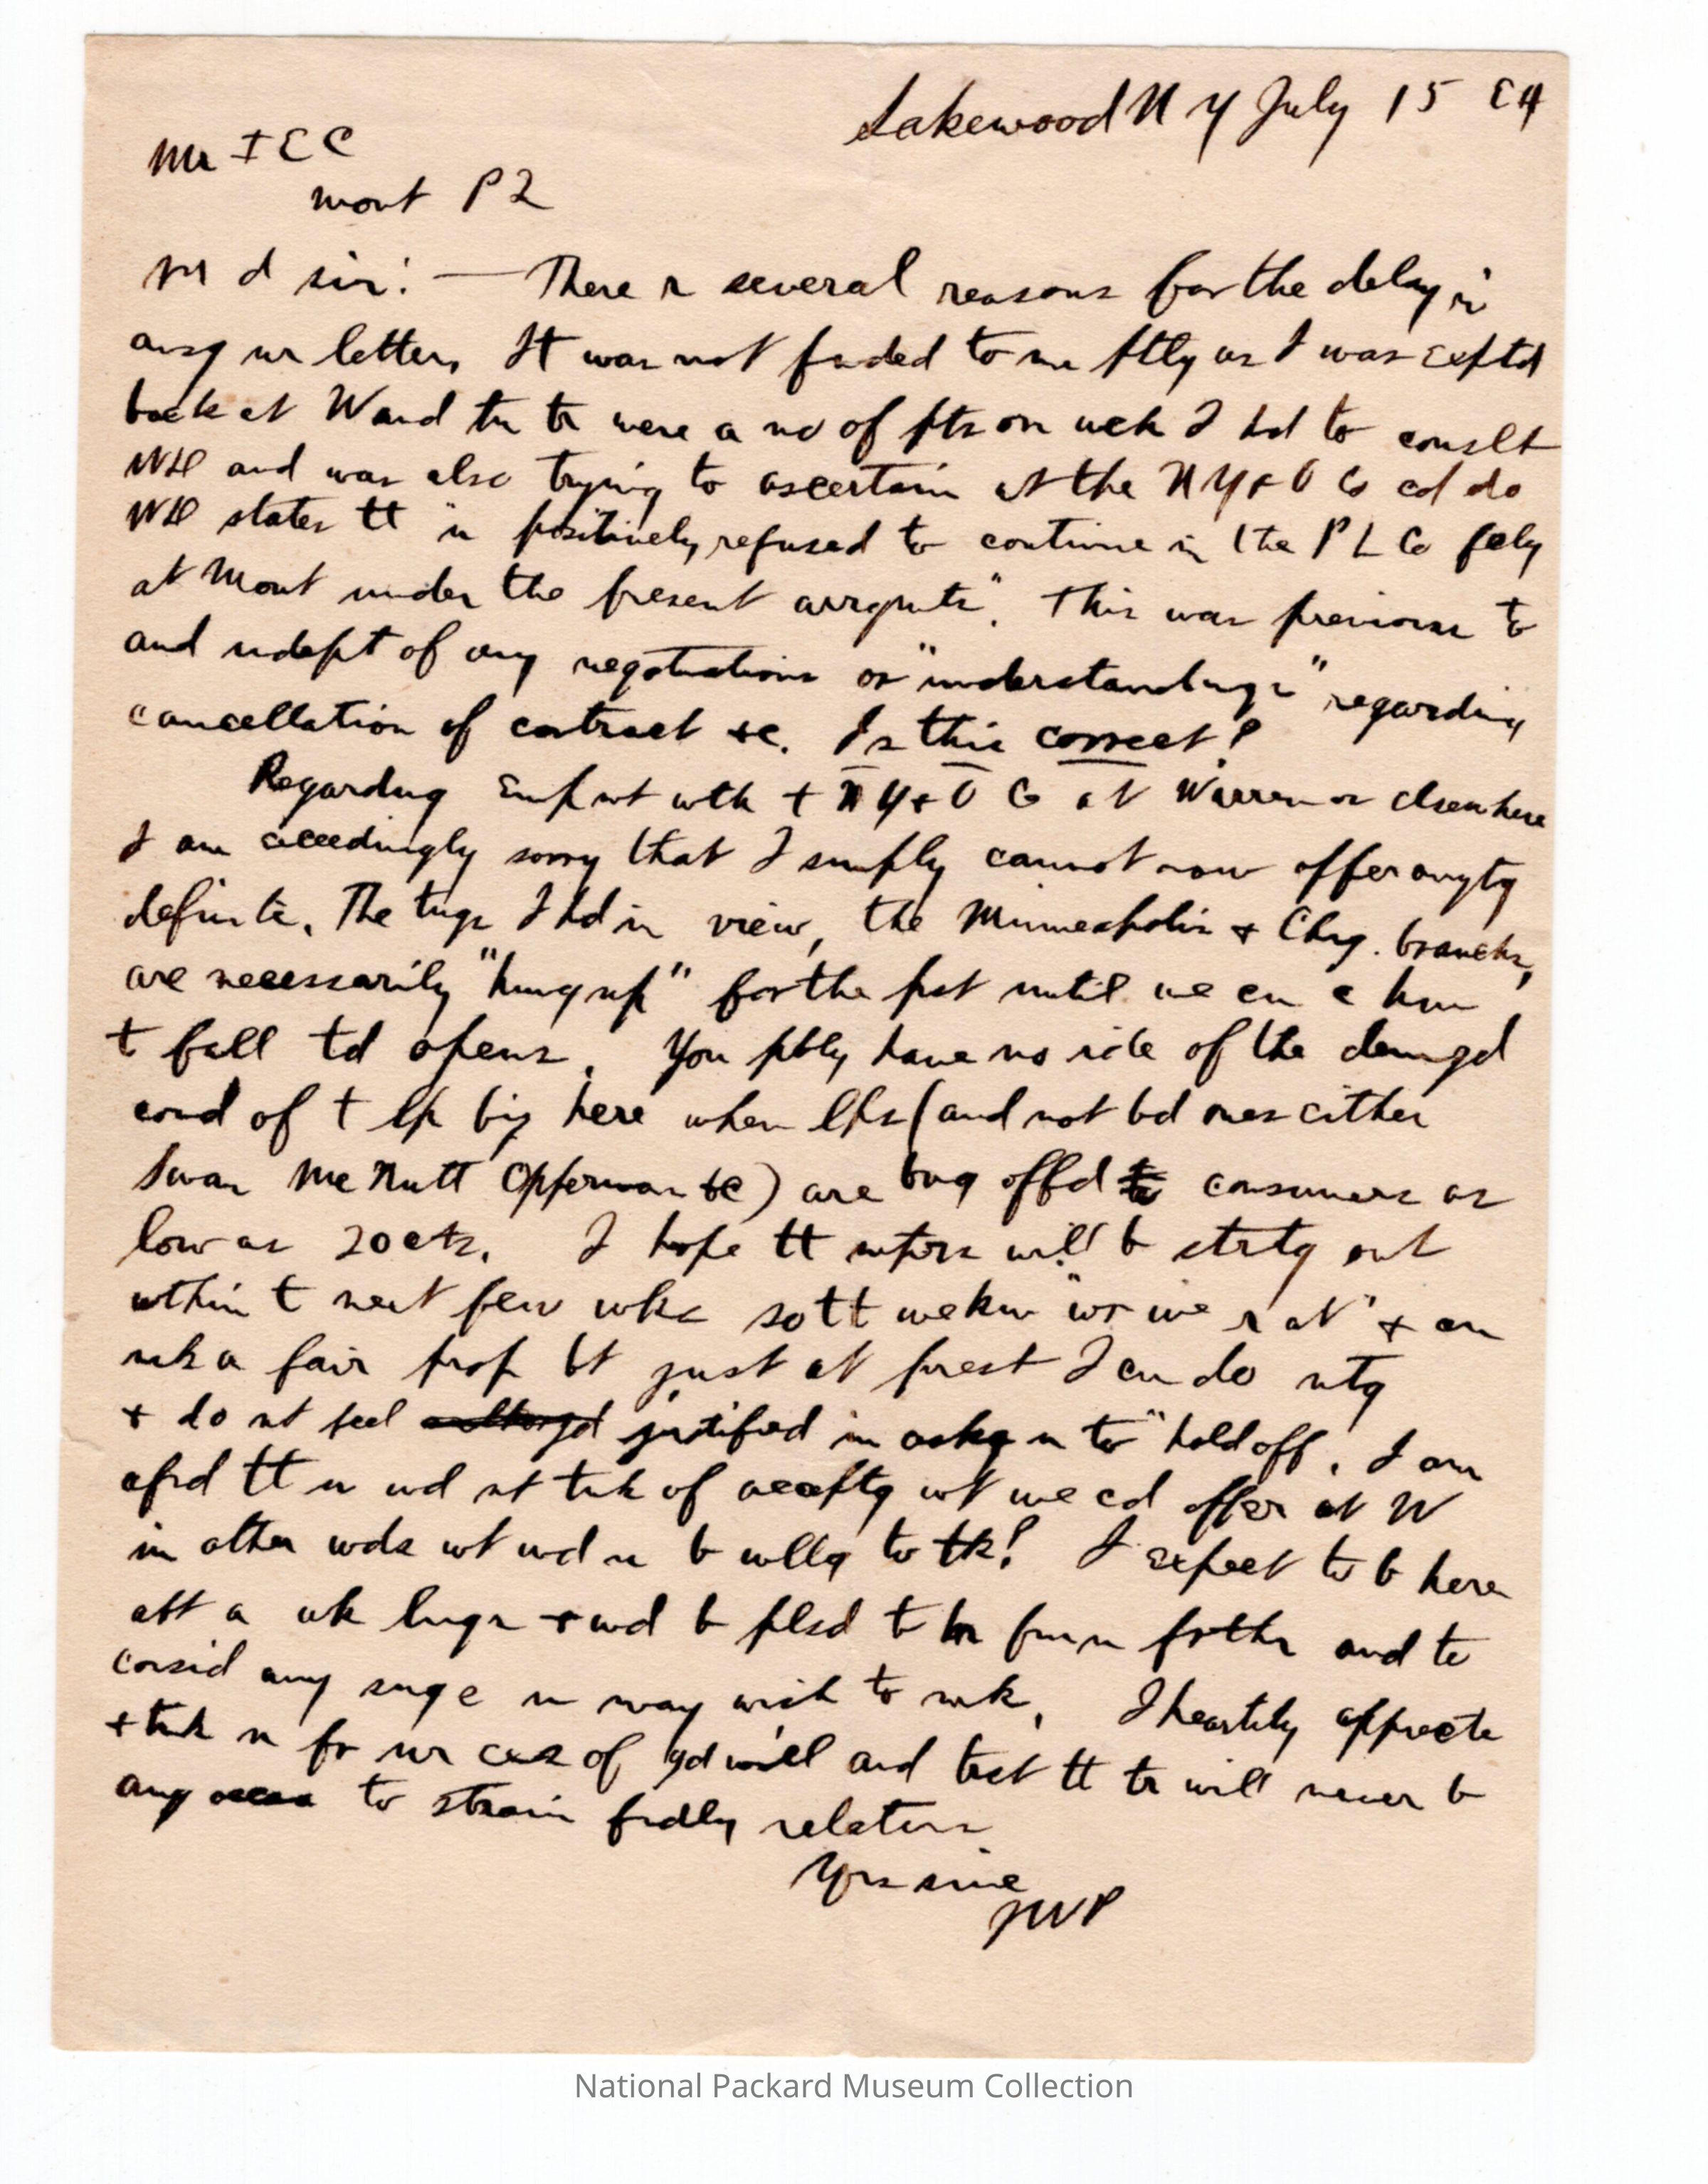 Lakewood N Y July 15 94
Mr I E C
Mont P2
M d sir: — There r several reasons for the delay in
ansg ur letter. It was not fwded to me ptly as I was exptd
back at W and tn tr were a no of pts on wch I hd to conslt
WD and was also trying to ascertain wt the N Y & O Co cd do
WD states tt "u positively refused to continue in the P L Co fcly
at Mont under the present arrgmts". This was previous to
and indept of any negotiations or "understandings" regarding
cancellation of contract &c. Is this correct?
Regarding Empmt wth t N Y & O Co at Warren or elsewhere
I am exceedingly sorry that I simply cannot now offer anytg
definite. The tngs I hd in view, the Minneapolis & Chig. branchs,
are necessarily "hung up" for the pst until we cn c how
t fall td opens. You pbly have no idea of the demrgd
cond of t lp biz here when lps (and not bd ones either
Swan McNutt Opperman &c) are bng offd to consumers as
low as 20 cts. I hope tt mtrs will b strtg out
wthin t next few wks so tt we knw "wr we r at" & cn
mk a fair prop bt just at prest I cn do ntg
& do nt feel justified in askg u to "hold off. I am
afrd tt u wd nt tnk of acceptg wt we cd offer at W
in other wds wt wd u b wllg to tk? I expect to b here
abt a wk lngr & wd b plsd t hr frm u frthr and to
consid any sugs u may wish to mk. I heartily apprecte
& tnk u fr ur exs of gd will and trst tt tr will never b
any occas to strain frdly relatins
Yrs sinc
JWP
National Packard Museum Collection